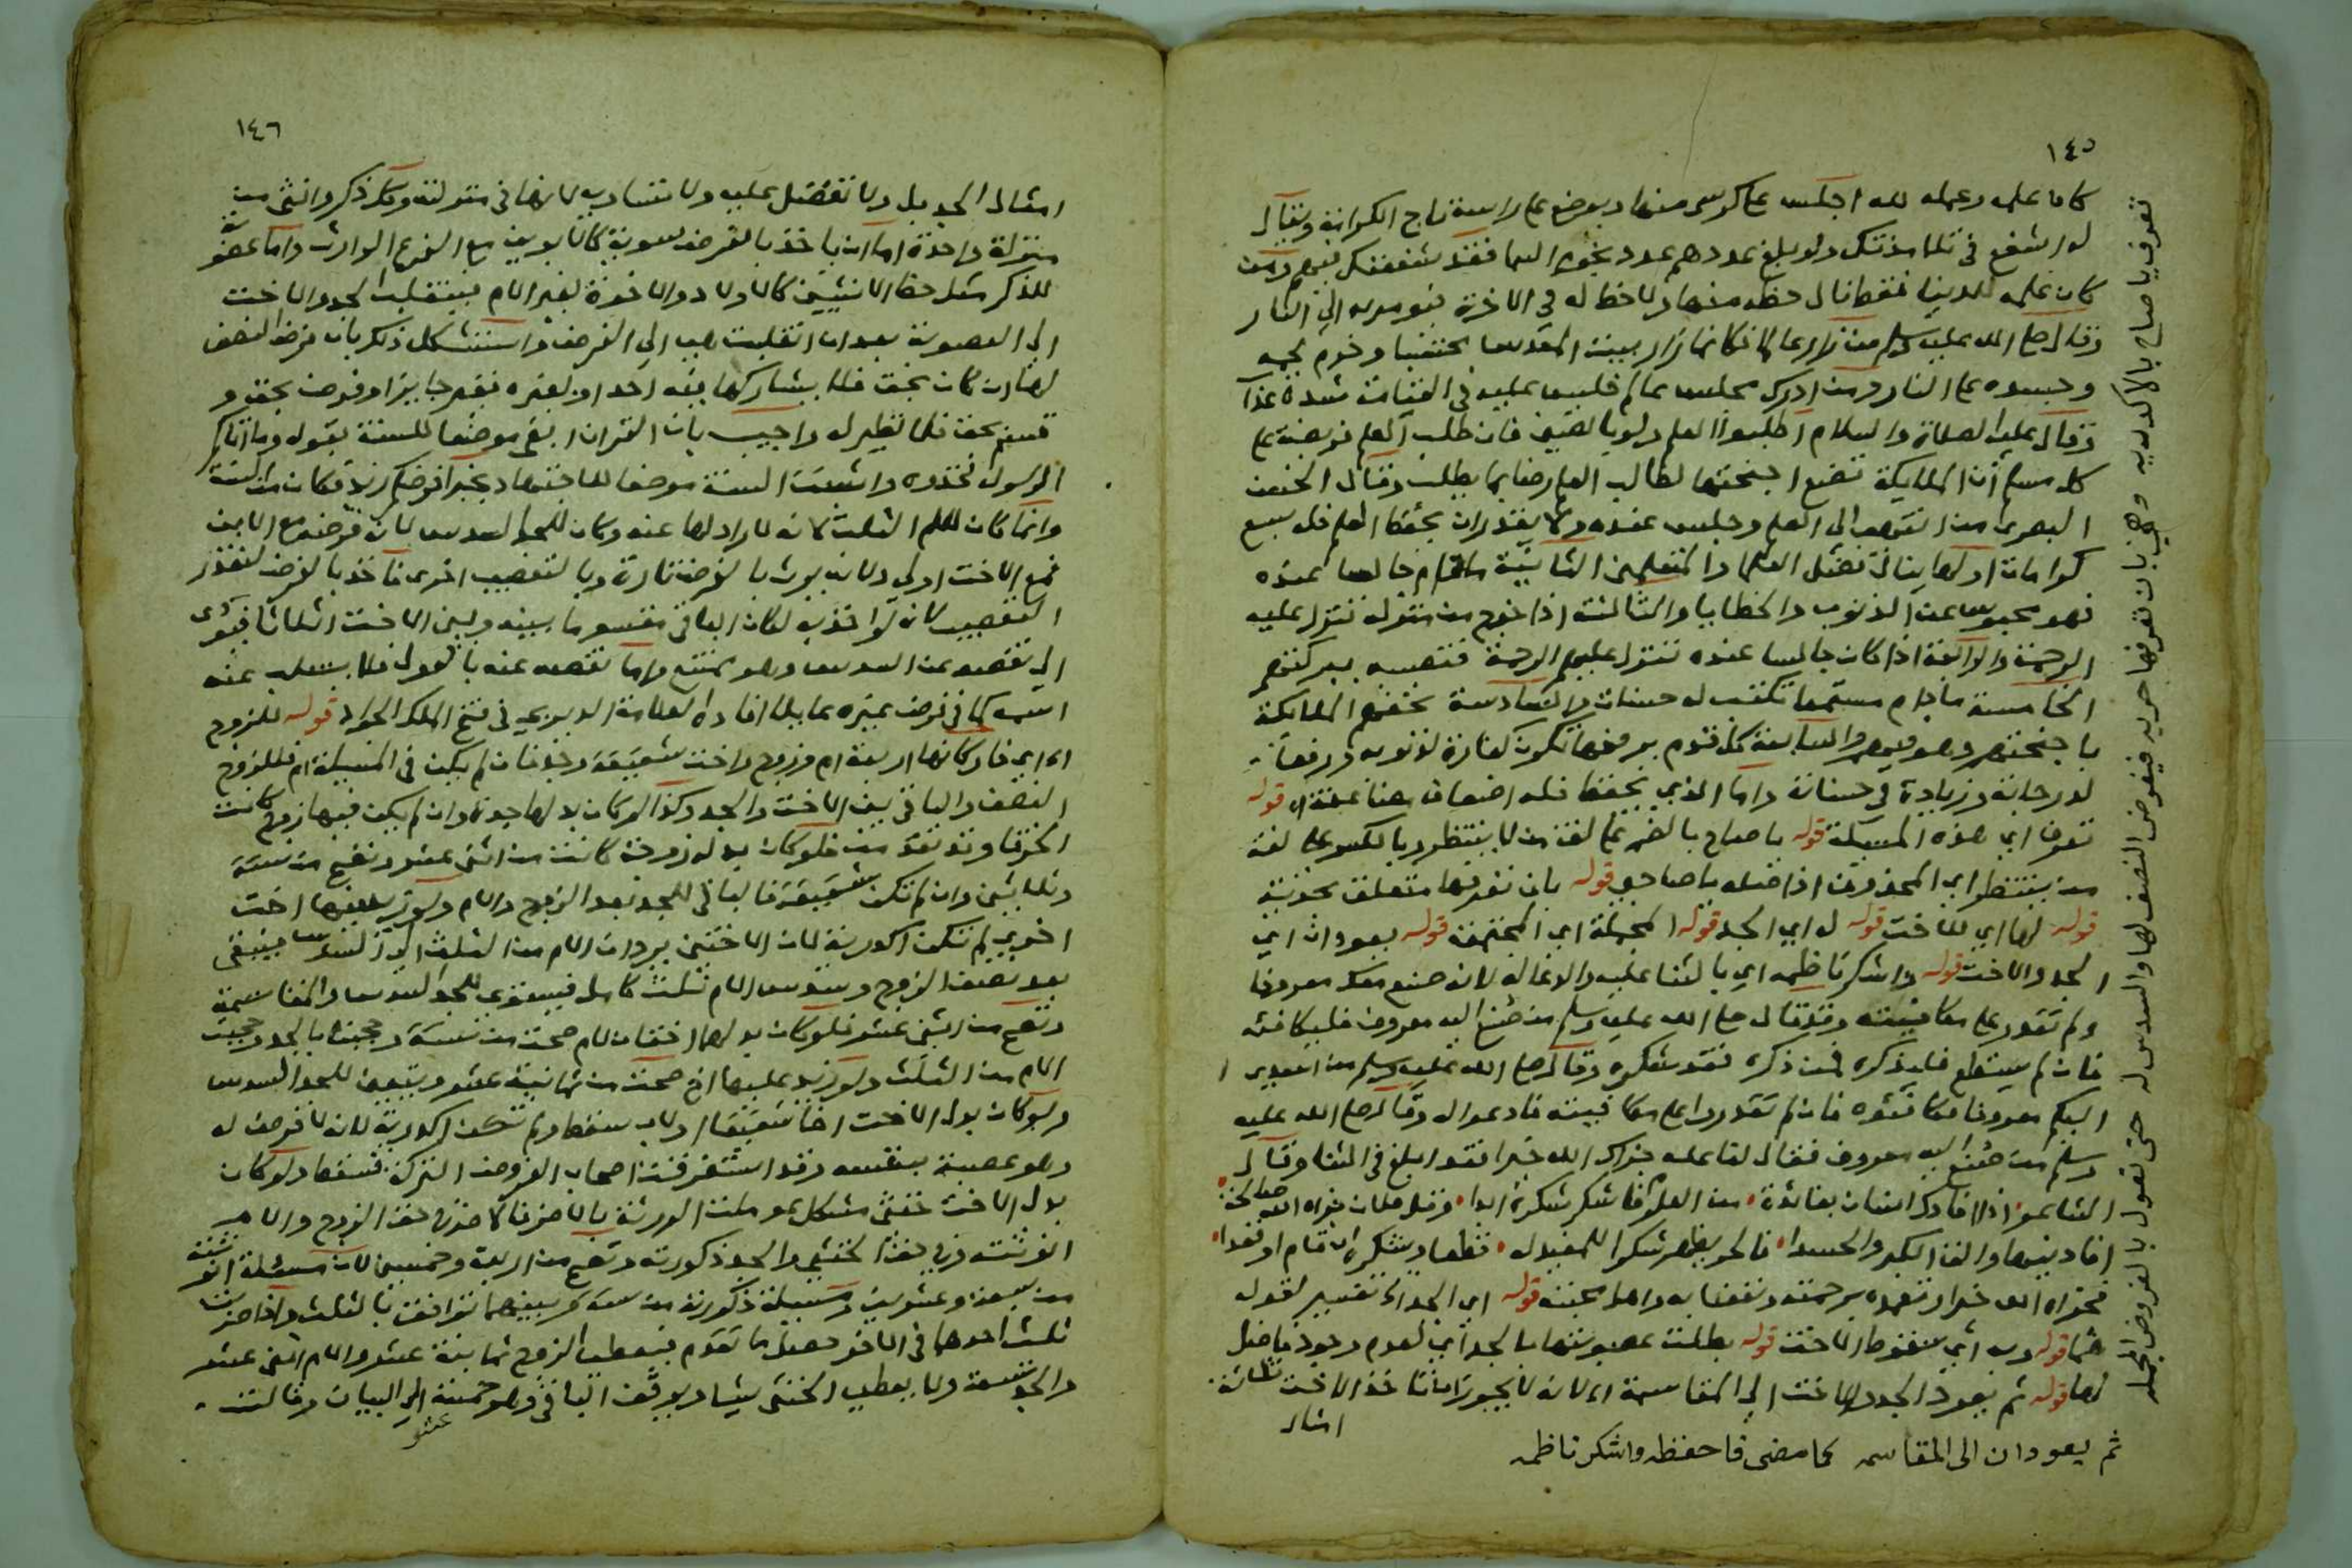 ١٤٥
كان علمه وعمله لله اجلس على كرسي منها ويوضع على راسه تاج الكرامة ويقال
له اشفع في تلامذتك ولو بلغ عددهم عدد نجوم السما فقد شفعتك فيهم ومن
كان علمه للدنيا فقط نال حظه منها ولا حظ له في الاخرة فيؤمر به الى النار
وقال صلى الله عليه وسلم من زار عالما فكانما زار بيت المقدس محتسبا وحرم لحمه
وجسده على النار ومن ادرك مجلس عالم فليس عليه في القيامة شدة عذاب
وقال عليه الصلاة والسلام اطلبوا العلم ولو بالصين فان طلب العلم فريضة على
كل مسلم ان الملايكة تضع اجنحتها لطالب العلم رضا بما يطلب وقال الحسن
البصري من انتهى الى العلم وجلس عنده ولا يقدر ان يحفظ العلم فله سبع
كرامات اولها ينال فضل العلما والمتعلمين الثانية مادام جالسا عنده
فهو محبوس عن الذنوب والخطايا والثالثة اذا خرج من منزله تنزل عليه
الرحمة والرابعة اذا كان جالسا عنده تنزل عليهم الرحمة فتصيبه ببركتهم
الخامسة مادام مستمعا تكتب له حسنات والسادسة تحفهم الملايكة
باجنحتهم وهو فيهم والسابعة كل قدم يرفعها تكون كفارة لذنوبه ورفعا
لدرجاته وزيادة في حسناته واما الذي يحفظ فله اضعاف مضاعفة قوله
تعرف اي هذه المسيلة قوله يا صاح بالضم على لغة من لا ينتظر وبالكسر على لغة
من ينتظر اي المحذوف اذ اصله يا صاحبي قوله بان تعرفها متعلق بحذنية
قوله لها اي للاخت قوله له اي الجد قوله المجملة اي المجتمعة قوله يعودان اي
الجد والاخت قوله واشكر ناظمه اي بالثنا عليه والدعا له لانه صنع معك معروفا
ولم تقدر على مكافيته وقد قال صلى الله عليه وسلم من صنع اليه معروف فليكافئه
فان لم يستطع فليذكره فمن ذكره فقد شكره وقال صلى الله عليه وسلم من اسدى
اليكم معروفا فكافئوه فان لم تقدروا على مكافيته فادعوا له وقال صلى الله عليه
وسلم من صنع اليه معروف فقال لفاعله جزاك الله خيرا فقد ابلغ في الثنا وقال
الشاعر اذا افادك انسان بفائدة من العلوم فاشكر شكره ابدا وقل فلان جزاه الله صالحة
افادنيها والق الكبر والحسدا فالحر يظهر شكرا للمفيد له فظا ويشكره ان قام او قعدا
فجزاه الله خيرا وتغمده برحمته ونفعنا به وادخله جنته قوله اي الجد الخ تفسير لقوله
هما قوله وبه اي سقوط الاخت قوله بطلت عصوبتها بالجد اي لعدم وجود فاضل
لها قوله ثم يعود الجد والاخت الى المقاسمة اي لانه لا يجوز ان تاخذ الاخت ثلاثة
امثال
ثم يعودان الى المقاسمه كما مضى فاحفظه واشكر ناظمه
تعرف يا صاح بالاكدريه وهي بان تعرفها حريه فيفرض النصف لها والسدس له حتى تعول بالفروض المجمله
١٤٦
امثال الجد بل ولا تفضل عليه ولا تساويه لانها في منزلته وكل ذكر وانثى من
منزلة واحدة اما ان ياخذ بالفرض سوية كالابوين مع الفرع الوارث واما عصوبة
للذكر مثل حظ الانثيين كالاولاد والاخوة لغير الام فينقلب الجد والاخت
الى العصوبة بعد ان انقلبت هي الى الفرض واستشكل ذلك بان فرض النصف
لها ان كان بحق فلا يشاركها فيه احد او لغيره فغير جايز او فرض بحق و
قسم بحق فلا نظير له واجيب بان القران ابقى موضعا للسنة بقوله وما اتاكم
الرسول فخذوه واثبتت السنة موضعا للاجتهاد بخبر افرضكم زيد فكان من السنة
وانما كان للام الثلث لانه لا راد لها عنه وكان للجد السدس لان فرضه مع الابن
فمع الاخت اولى ولانه يرث بالفرض تارة وبالتعصيب اخرى فاخذ بالفرض لتعذر
التعصيب لانه لو اخذ به لكان الباقي مقسوما بينه وبين الاخت اثلاثا فيؤدي
الى نقصه عن السدس وهو ممتنع واما نقصه عنه بالعول فلا يسلب عنه
اسمه كما في فرض غيره عايلا افاده العلامة الديربي في فتح الملك الجواد قوله للزوج
اه اي فاركانها اربعة ام وزوج واخت شقيقة وجد فان لم يكن في المسيلة ام فللزوج
النصف والباقي بين الاخت والجد وكذا لو كان بدلها جدة وان لم يكن فيها زوج كانت
الخرقا وقد تقدمت فلو كان بدله زوجة كانت من اثنى عشر وتصح من ستة
وثلاثين وان لم تكن شقيقة فالباقي للجد بعد الزوج والام ولو زيد عليها اخت
اخرى لم تكن اكدرية لان الاختين يردان الام من الثلث الى السدس فيبقى
بعد نصف الزوج وسدس الام ثلث كامل فيستوي للجد السدس والمقاسمة
وتصح من اثنى عشر فلو كان بدلها اختان لام صحت من ستة وحجبتا بالجد وحجبت
الام من الثلث ولو زيد عليها اخ صحت من ثمانية عشر ويتعين للجد السدس
ولو كان بدل الاخت اخا شقيقا او لاب سقط ولم تكن اكدرية لانه لا فرض له
وهو عصبة بنفسه وقد استغرقت اصحاب الفروض التركة فسقط ولو كان
بدل الاخت خنثى مشكل عوملت الورثة بالاضر فالاضر في حق الزوج والام
انوثته وفي حق الخنثى والجد ذكورته وتصح من اربعة وخمسين لان مسيلة انوثته
من سبعة وعشرين ومسيلة ذكورته من ستة وبينهما توافق بالثلث واذا ضربت
ثلث احدهما في الاخر حصل ما تقدم فيعطى الزوج ثمانية عشر والام اثنى عشر
والجد تسعة ولا يعطى الخنثى شيئا ويوقف الباقي وهو خمسة عشر الى البيان وقالت